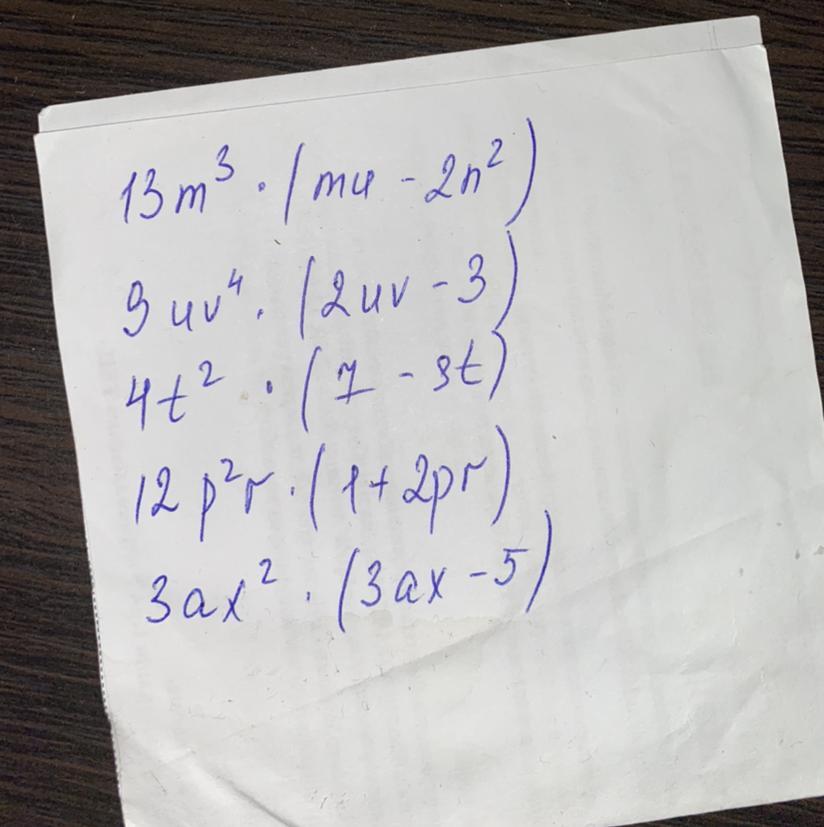 13m³ · (mu - 2n²)
9uv⁴ · (2uv - 3)
4t² · (7 - 3t)
12p²r · (1 + 2pr)
3ax² · (3ax - 5)